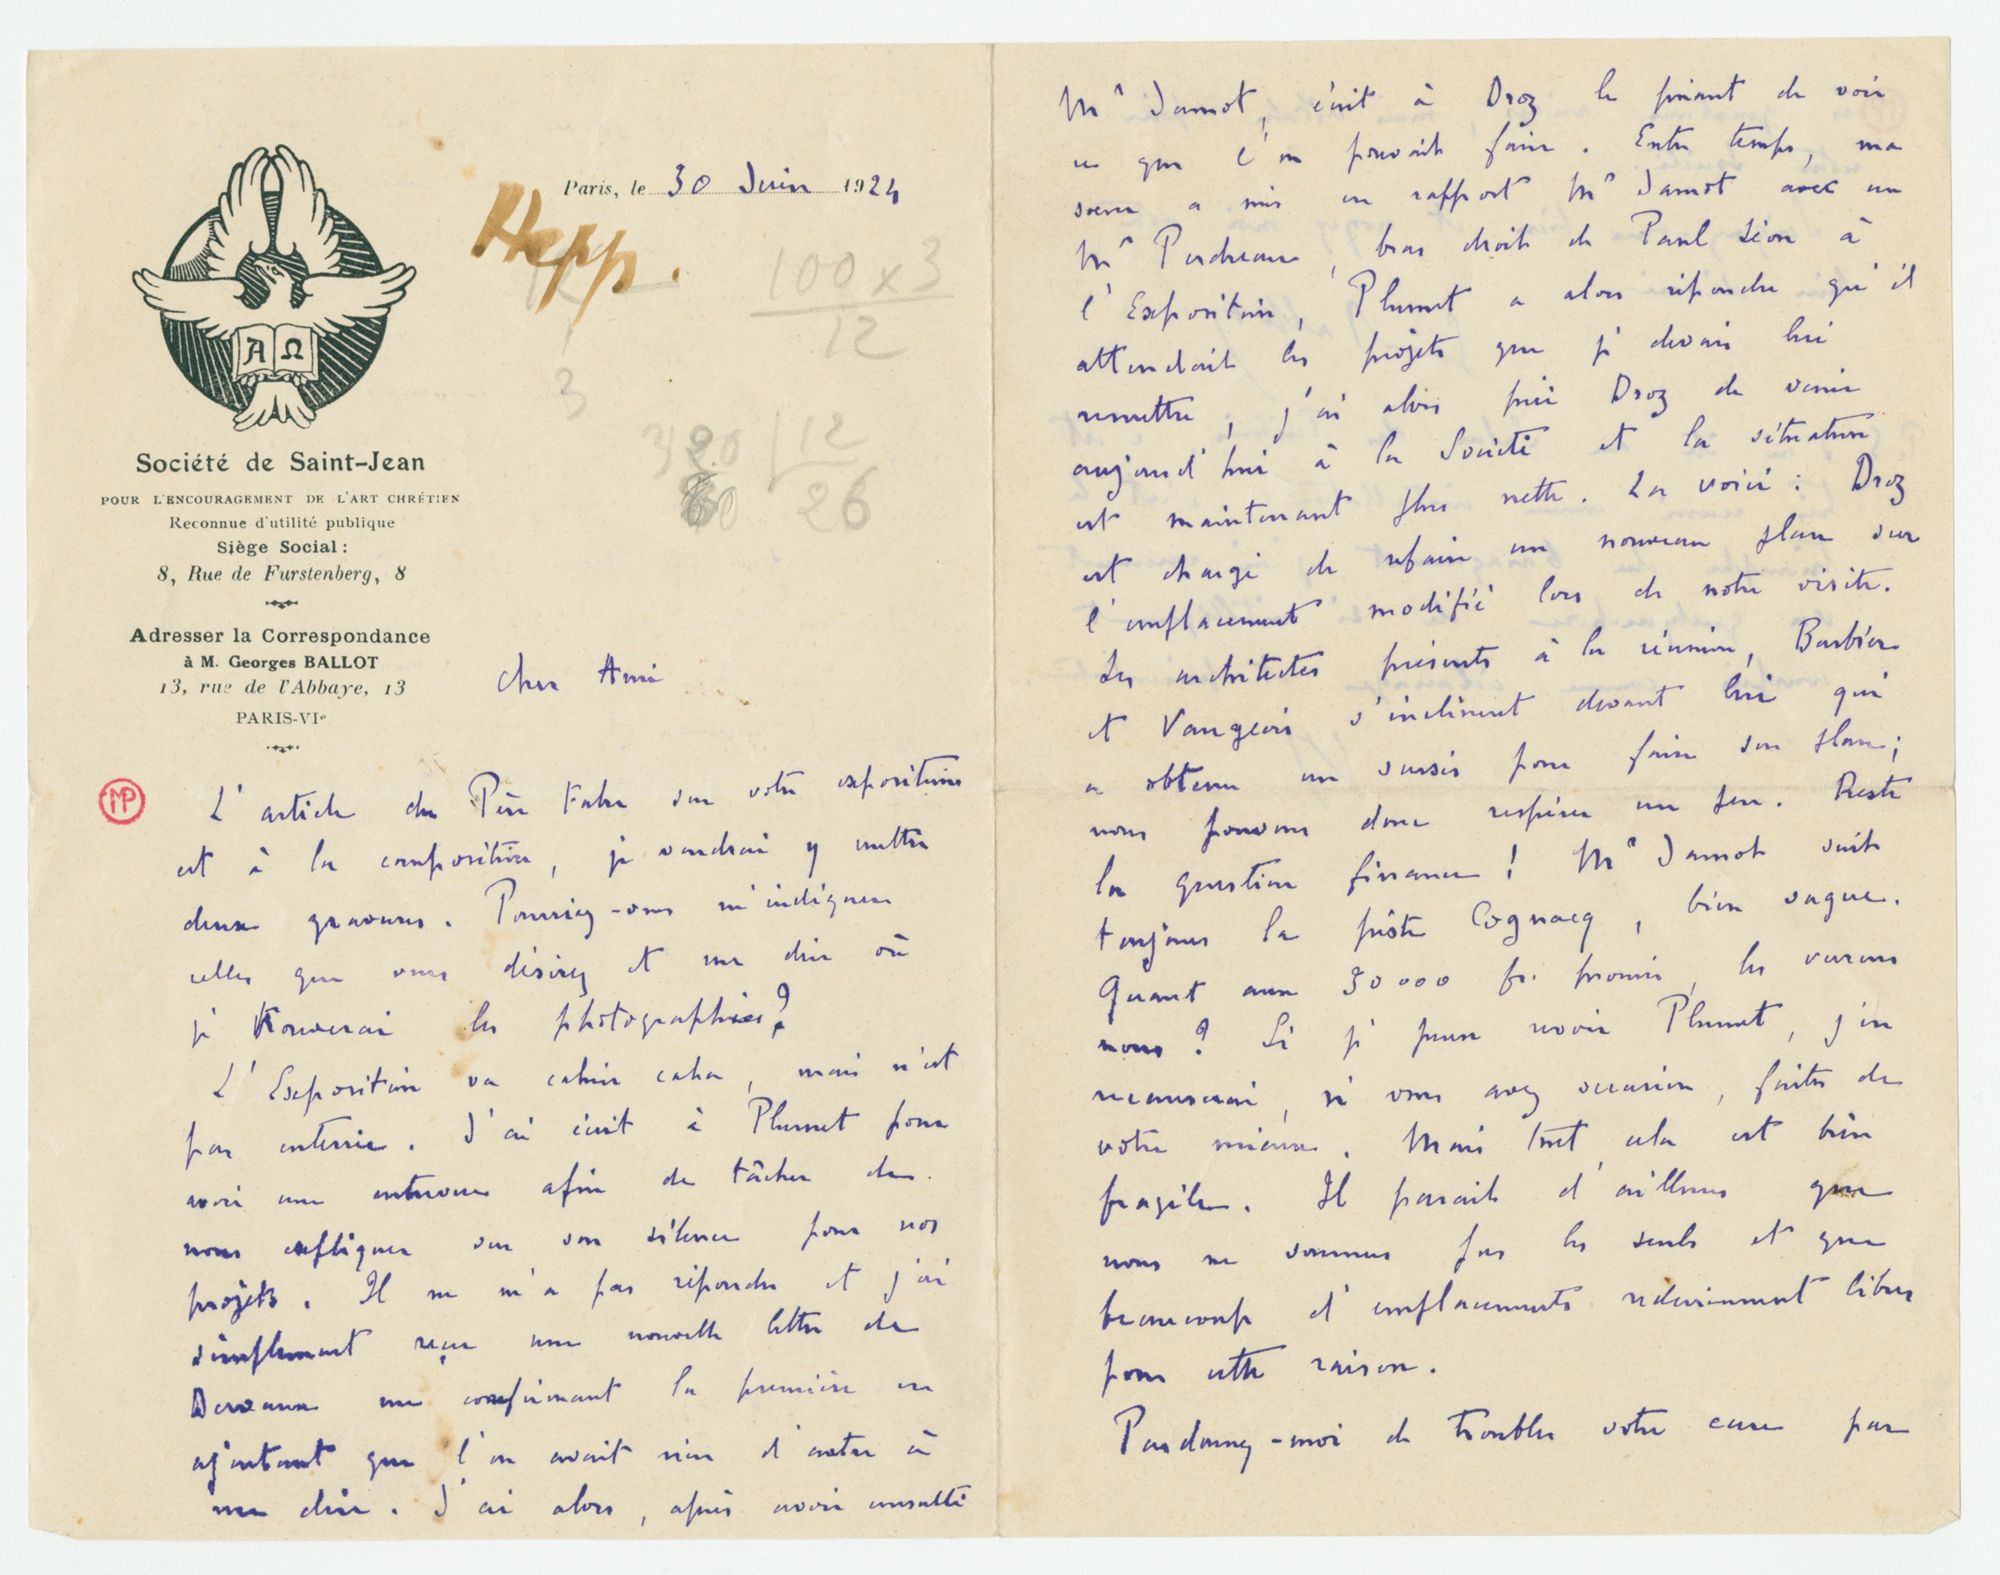 Paris, le 30 Juin 1924
Hepp.
100 x 3
12
3
12
26
A Ω
Société de Saint-Jean
POUR L'ENCOURAGEMENT DE L'ART CHRÉTIEN
Reconnue d'utilité publique
Siège Social :
8, Rue de Furstenberg, 8
Adresser la Correspondance
à M. Georges BALLOT
13, rue de l'Abbaye, 13
PARIS-VIe
Cher Ami
MP
L'article du Père Fabre sur votre exposition
est à la composition, je voudrai y mettre
deux gravures. Pourriez-vous m'indiquer
celles que vous désirez et me dire où
je trouverai les photographies ?
L'Exposition va cahin caha, mais n'est
pas enterrée. J'ai écrit à Plumet pour
avoir une entrevue afin de tâcher de
nous expliquer sur son silence pour nos
projets. Il ne m'a pas répondu et j'ai
simplement reçu une nouvelle lettre de
me confirmant la première en
ajoutant que l'on avait rien d'autre à
me dire. J'ai alors, après avoir consulté
Mr Jamot, écrit à Droz le priant de voir
ce que l'on pouvait faire. Entre temps, ma
soeur a mis en rapport Mr Jamot avec un
Mr Perdreau, bras droit de Paul Léon à
l'Exposition, Plumet a alors répondu qu'il
attendait les projets que je devais lui
remettre, j'ai alors prié Droz de venir
aujourd'hui à la Société et la situation
est maintenant plus nette. La voici : Droz
est chargé de refaire un nouveau plan sur
l'emplacement modifié lors de notre visite.
Les architectes présents à la réunion, Barbier
et Vaugeois s'inclinent devant lui qui
a obtenu un sursis pour faire son plan ;
nous pouvons donc respirer un peu. Reste
la question finance ! Mr Jamot suit
toujours la piste Cognacq, bien vague.
Quant aux 30000 fr. promis, les aurons
nous ? Si je peux revoir Plumet, j'en
recauserai, si vous avez occasion, faites de
votre mieux. Mais tout cela est bien
fragile. Il parait d'ailleurs que
nous ne sommes pas les seuls et que
beaucoup d'emplacements redeviennent libres
pour cette raison.
Pardonnez-moi de troubler votre cure par